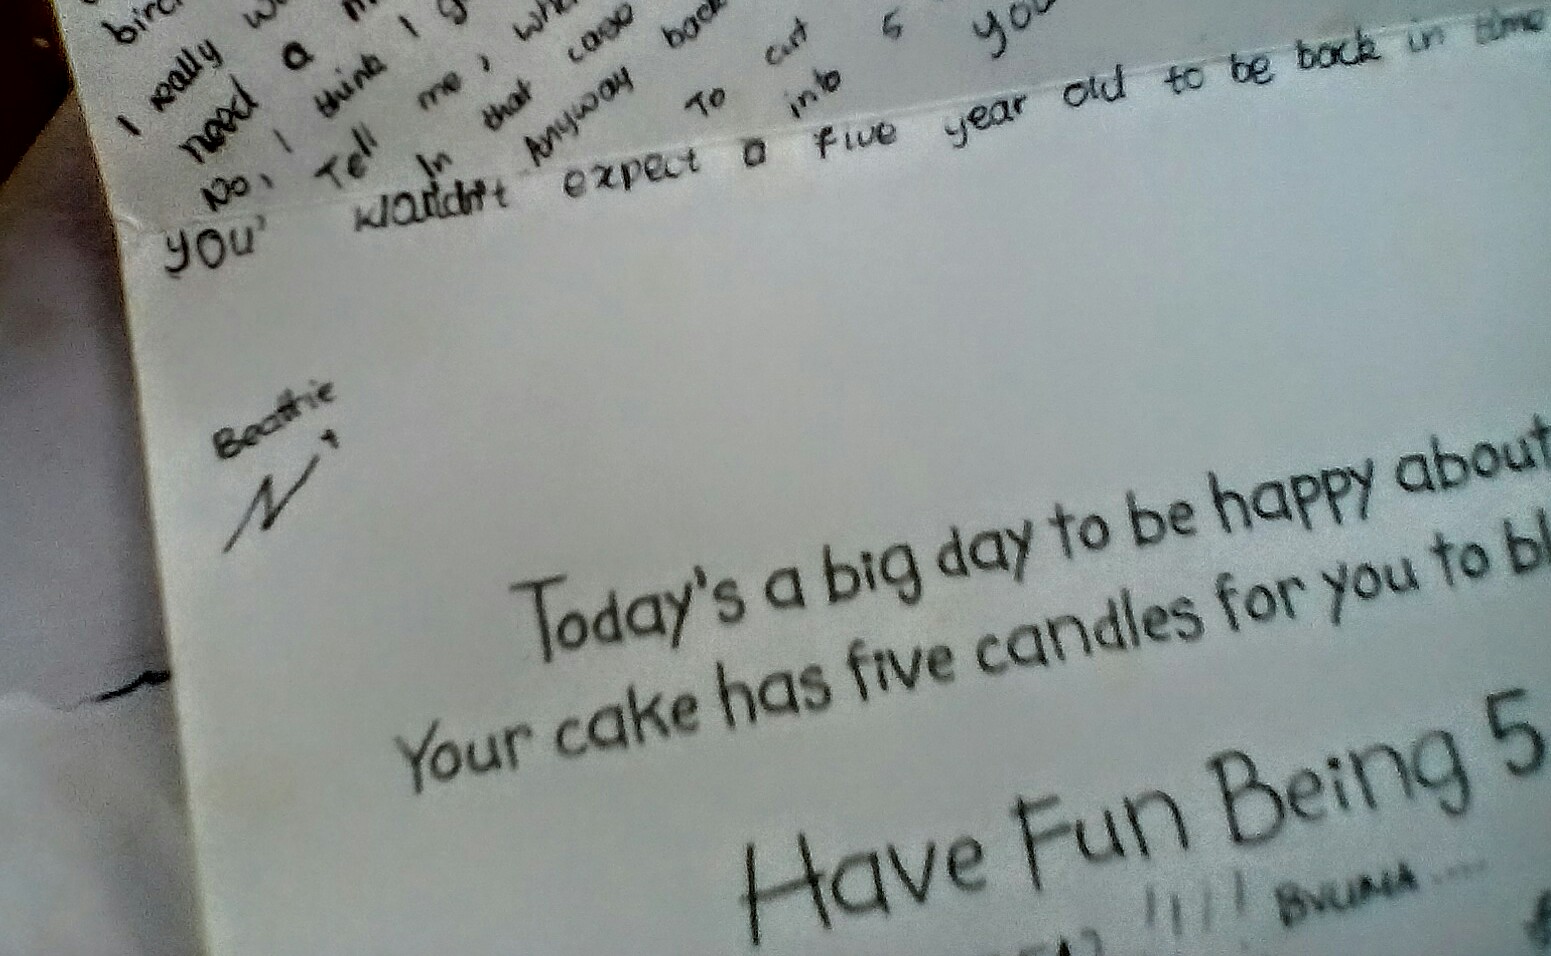 I really
need a
No, I think I
Tell me, 
In that case
Anyway back
To cut 5 you
into
you' wouldn't expect a five year old to be back in time
Beattie
Today's a big day to be happy about
Your cake has five candles for you to bl
Have Fun Being 5
!!!!